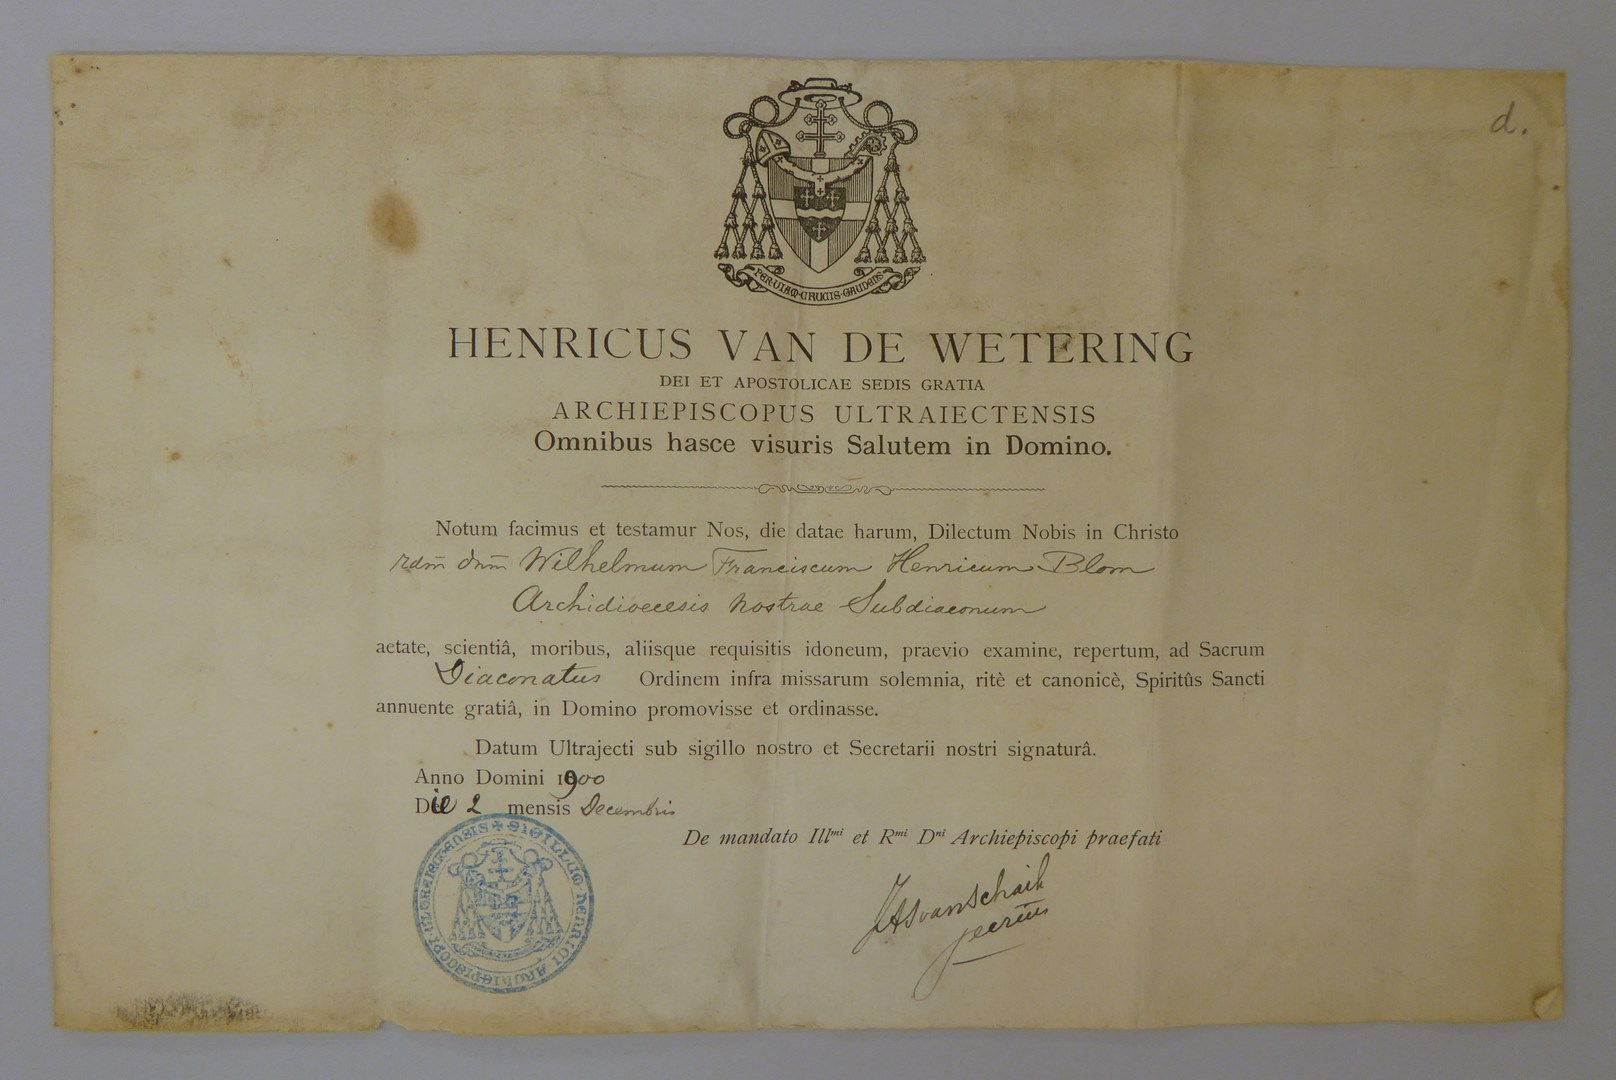 d.
PER·VIAM·CRUCIS·GAUDENS
HENRICUS VAN DE WETERING
DEI ET APOSTOLICAE SEDIS GRATIA
ARCHIEPISCOPUS ULTRAIECTENSIS
Omnibus hasce visuris Salutem in Domino.
Notum facimus et testamur Nos, die datae harum, Dilectum Nobis in Christo
rdm̄ dnm̄ Wilhelmum Franciscum Henricum Blom
Archidioecesis nostrae Subdiaconum
aetate, scientiâ, moribus, aliisque requisitis idoneum, praevio examine, repertum, ad Sacrum
Diaconatus Ordinem infra missarum solemnia, ritè et canonicè, Spiritûs Sancti
annuente gratiâ, in Domino promovisse et ordinasse.
Datum Ultrajecti sub sigillo nostro et Secretarii nostri signaturâ.
Anno Domini 1900
Die 2 mensis Decembris
De mandato Illᵐⁱ et Rᵐⁱ Dⁿⁱ Archiepiscopi praefati
SIGILLUM·HENRICI·ARCHIEPISCOPI·ULTRAIECTENSIS
van Schaik